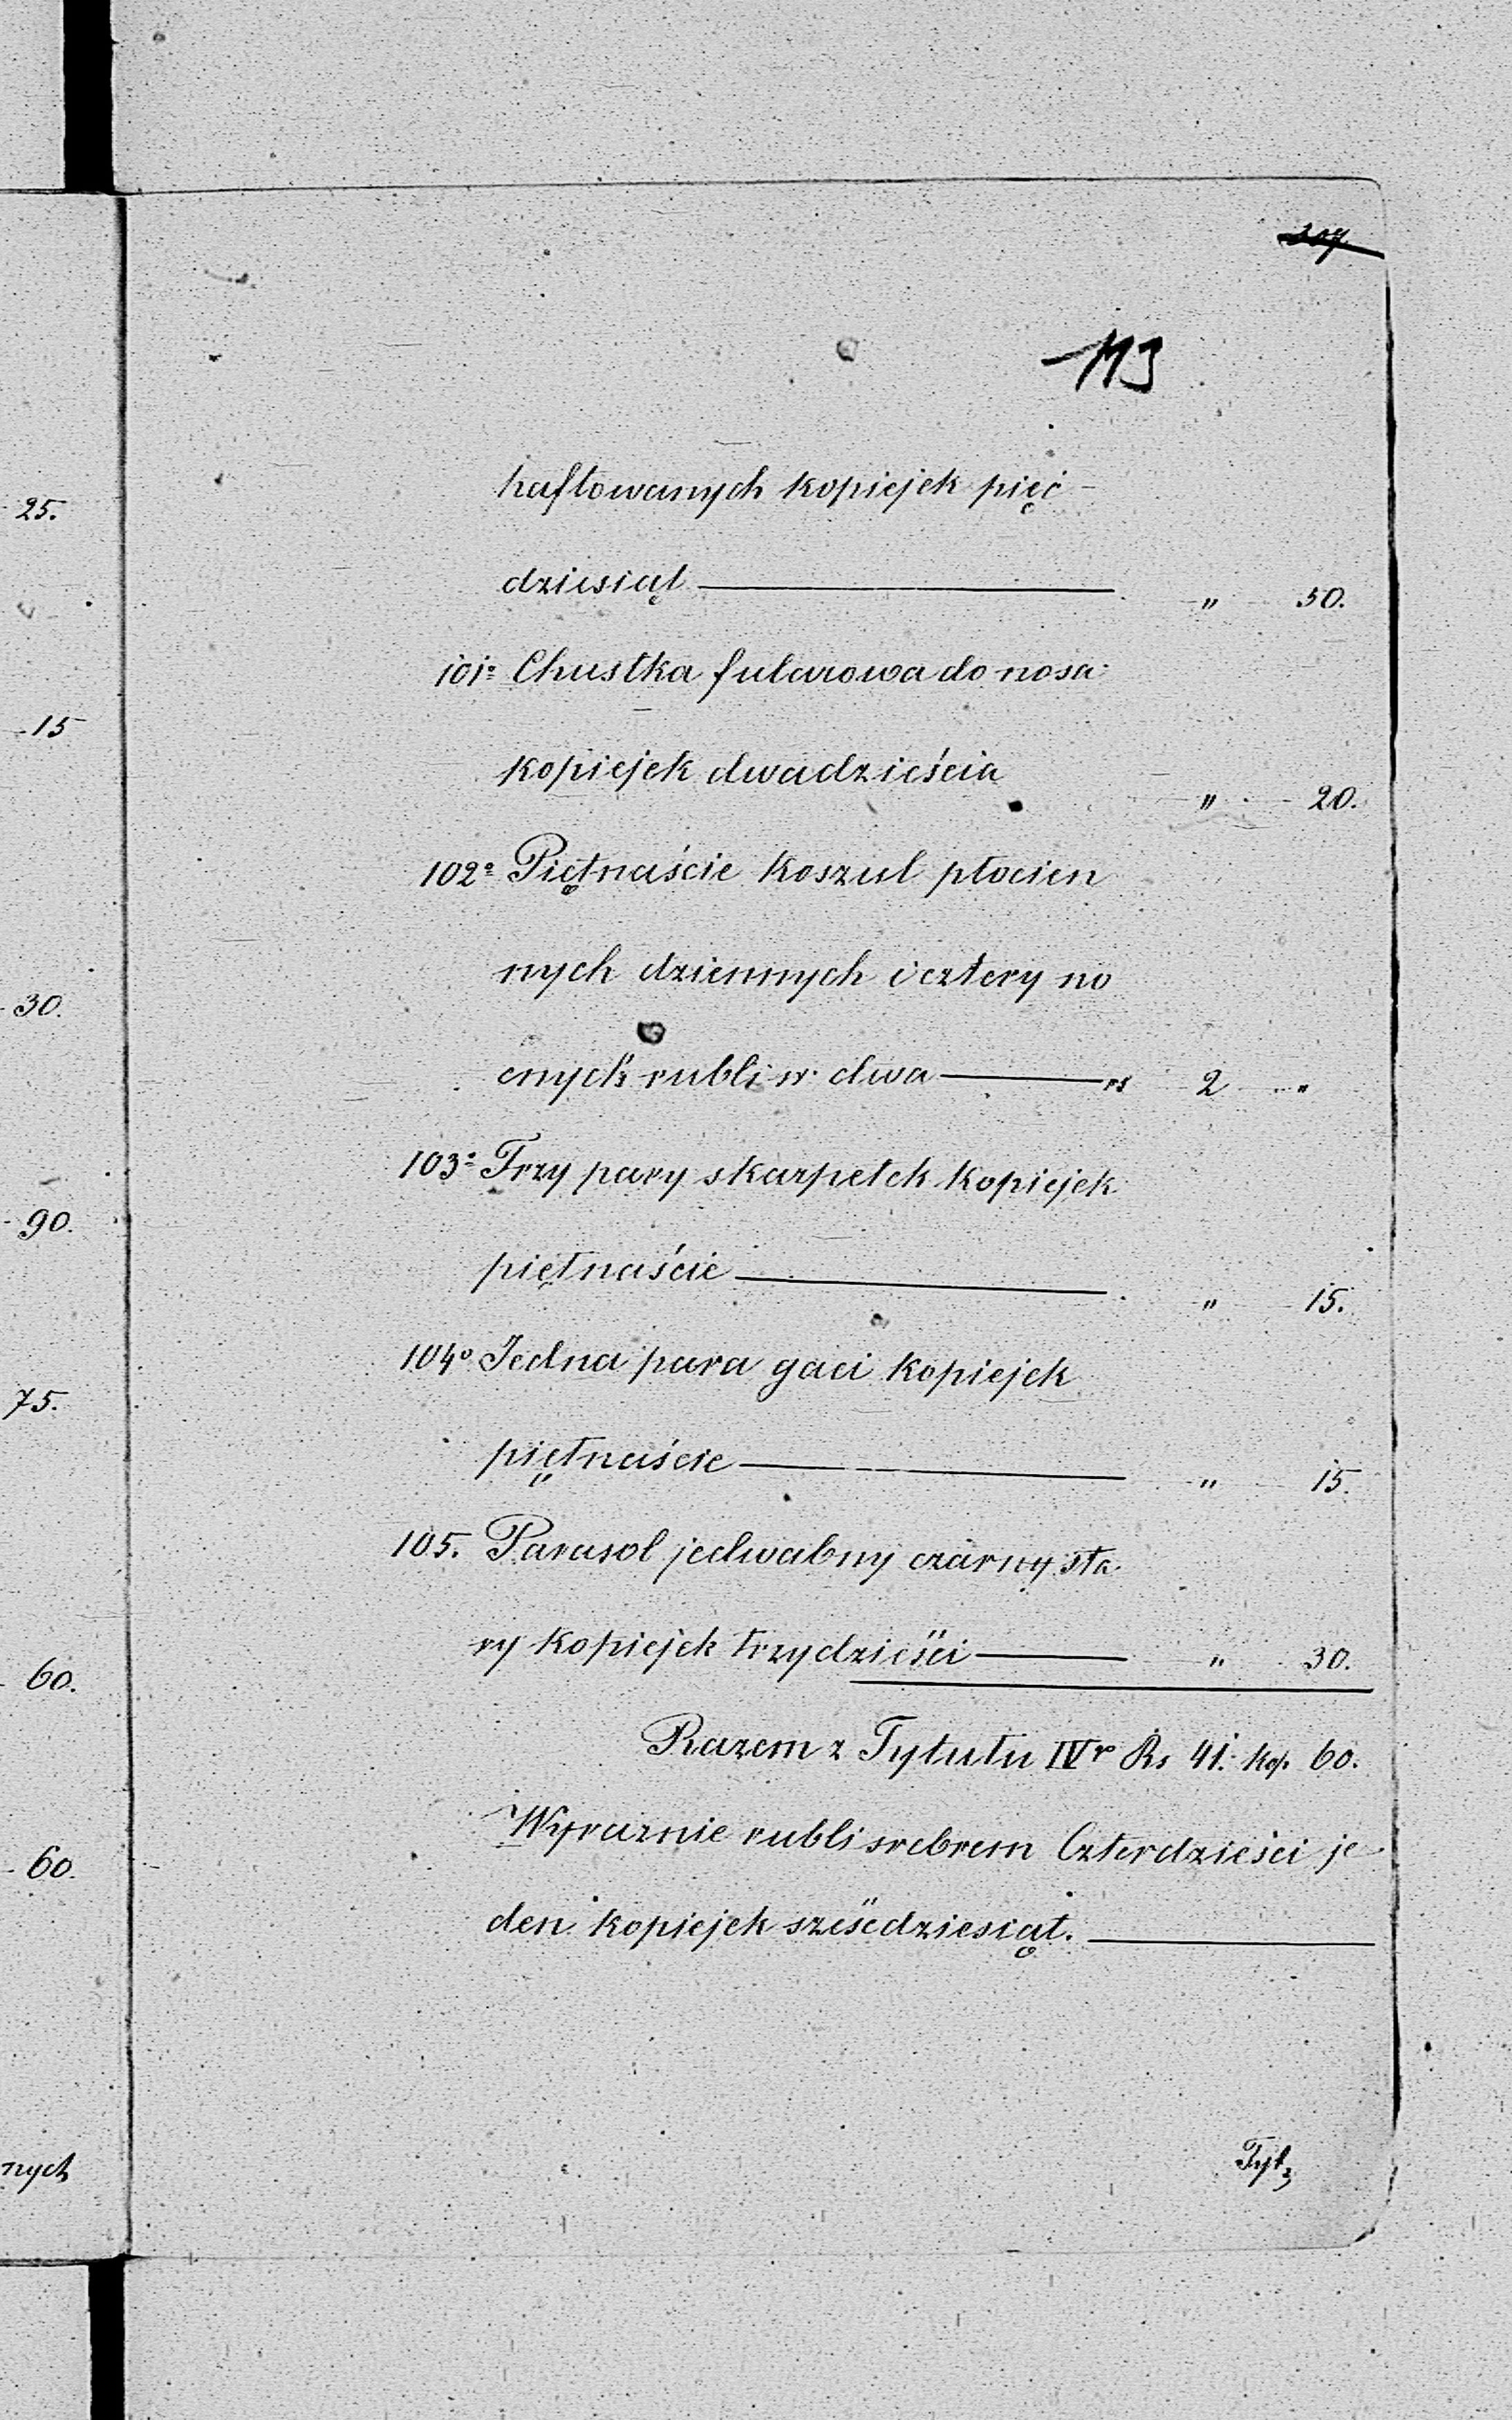 113
haftowanych kopiejek pięć-
dziesiąt — " 50.
101o Chustka fularowa do nosa
kopiejek dwadzieścia " 20.
102o Piętnaście koszul płócien
nych dziennych i cztery no
cnych rubli sr. dwa — rs 2 "
103o Trzy pary skarpetek kopiejek
piętnaście — " 15.
104o Jedna para gaci kopiejek
piętnaście — " 15.
105. Parasol jedwabny czarny sta
ry kopiejek trzydzieści — " 30.
Razem z Tytułu IVo Rs 41. kop. 60.
Wyraznie rubli srebrem Czterdzieści je
den kopiejek sześćdziesiąt. —
Tyt
25.
15
30.
90.
75.
60.
60.
nych